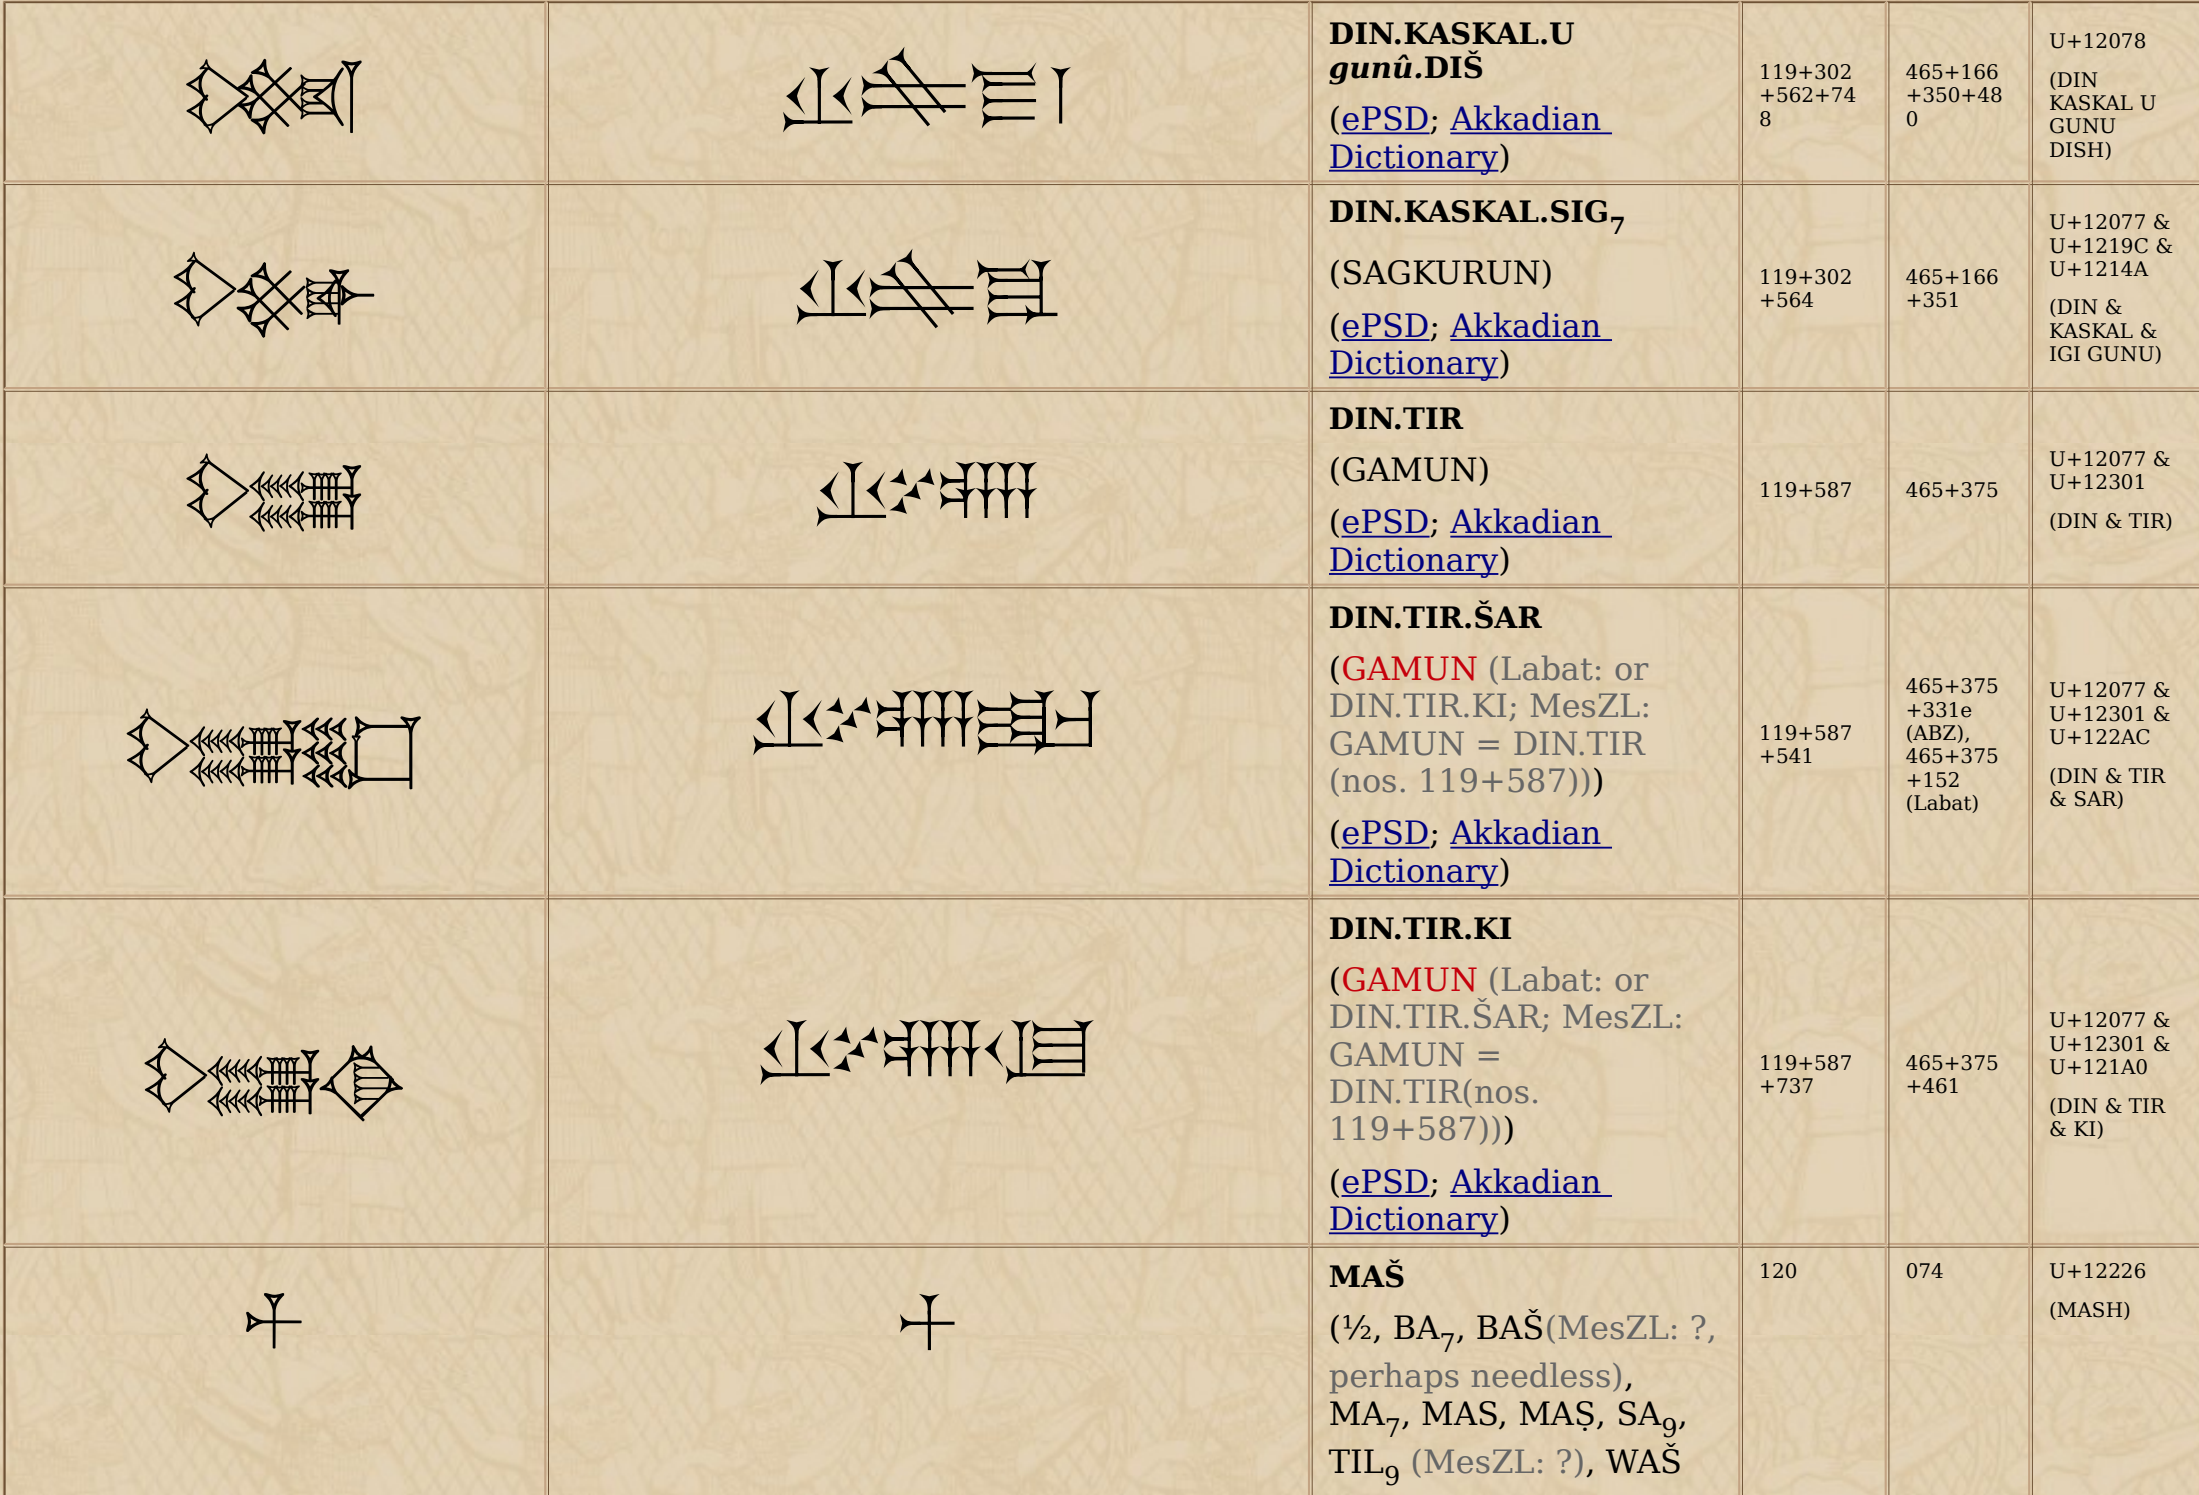 𒁸
𒁸
DIN.KASKAL.U
gunû.DIŠ
(ePSD; Akkadian
Dictionary)
119+302
+562+74
8
465+166
+350+48
0
U+12078
(DIN
KASKAL U
GUNU
DISH)
𒁷𒆜𒅊
𒁷𒆜𒅊
DIN.KASKAL.SIG₇
(SAGKURUN)
(ePSD; Akkadian
Dictionary)
119+302
+564
465+166
+351
U+12077 &
U+1219C &
U+1214A
(DIN &
KASKAL &
IGI GUNU)
𒁷𒌁
𒁷𒌁
DIN.TIR
(GAMUN)
(ePSD; Akkadian
Dictionary)
119+587
465+375
U+12077 &
U+12301
(DIN & TIR)
𒁷𒌁𒊬
𒁷𒌁𒊬
DIN.TIR.ŠAR
(GAMUN (Labat: or
DIN.TIR.KI; MesZL:
GAMUN = DIN.TIR
(nos. 119+587)))
(ePSD; Akkadian
Dictionary)
119+587
+541
465+375
+331e
(ABZ),
465+375
+152
(Labat)
U+12077 &
U+12301 &
U+122AC
(DIN & TIR
& SAR)
𒁷𒌁𒆠
𒁷𒌁𒆠
DIN.TIR.KI
(GAMUN (Labat: or
DIN.TIR.ŠAR; MesZL:
GAMUN =
DIN.TIR(nos.
119+587)))
(ePSD; Akkadian
Dictionary)
119+587
+737
465+375
+461
U+12077 &
U+12301 &
U+121A0
(DIN & TIR
& KI)
𒈦
𒈦
MAŠ
(½, BA₇, BAŠ(MesZL: ?,
perhaps needless),
MA₇, MAS, MAṢ, SA₉,
TIL₉ (MesZL: ?), WAŠ
120
074
U+12226
(MASH)